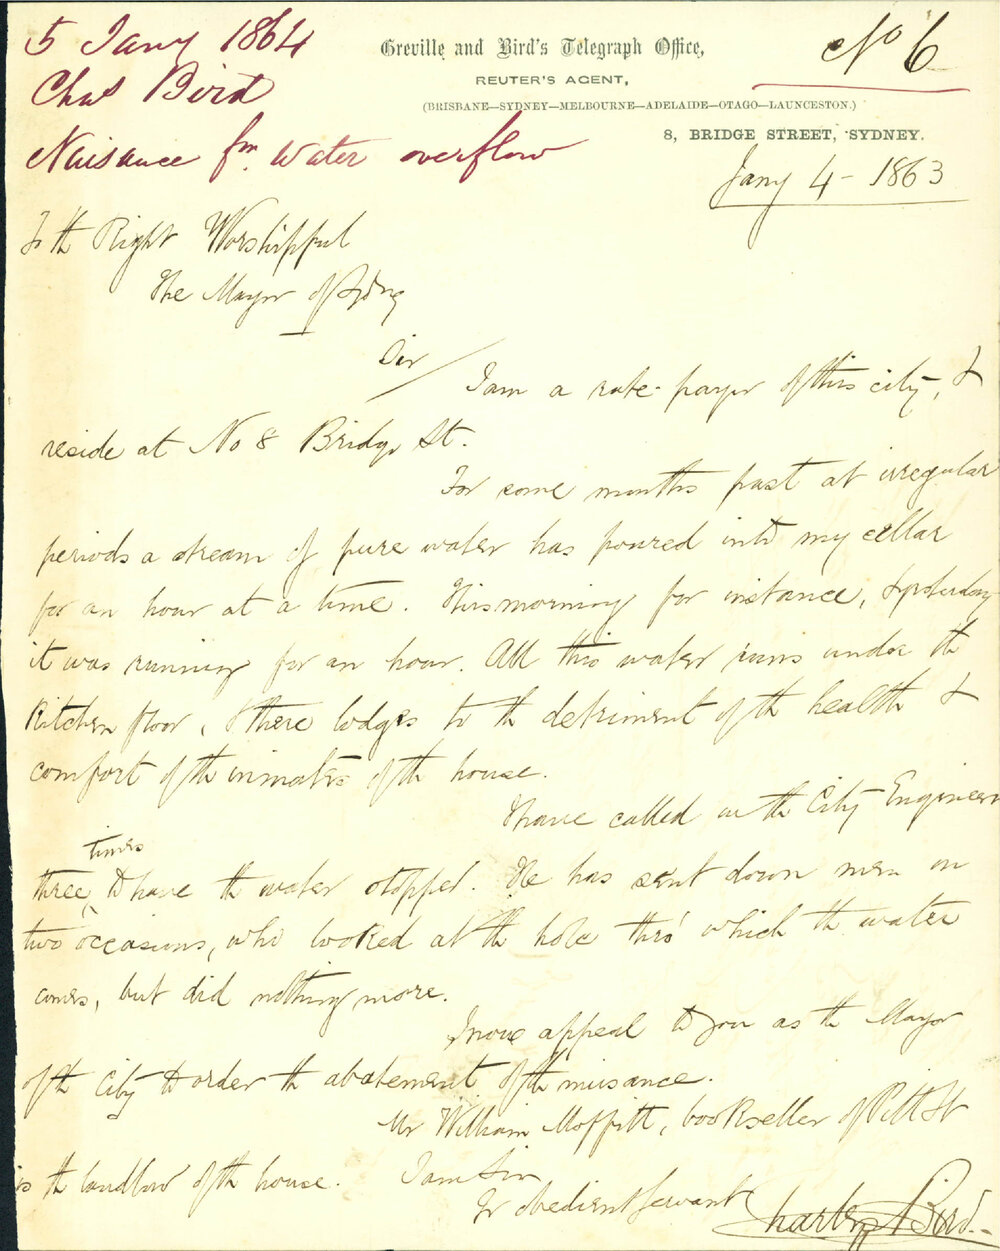 5 Jany 1864
Chas Bird
Nuisance fm. water overflow
No 6
Greville and Bird's Telegraph Office,
REUTER'S AGENT,
(BRISBANE—SYDNEY—MELBOURNE—ADELAIDE—OTAGO—LAUNCESTON.)
8, BRIDGE STREET, SYDNEY.
Jany 4 - 1863
To the Right Worshipful
The Mayor of Sydney
Sir/
I am a rate-payer of this city, &
reside at No 8 Bridge St.
For some months past at irregular
periods a stream of pure water has poured into my cellar
for an hour at a time. This morning for instance, & yesterday
it was running for an hour. All this water runs under the
Kitchen floor, & there lodges to the detriment of the health &
comfort of the inmates of the house.
I have called on the City Engineer
three times to have the water stopped. He has sent down men on
two occasions, who looked at the hole thro' which the water
comes, but did nothing more.
I now appeal to you as the Mayor
of the City to order the abatement of the nuisance.
Mr William Moffitt, bookseller of Pitt St
is the landlord of the house.
I am Sir
Yr obedient Servant
Charles Bird